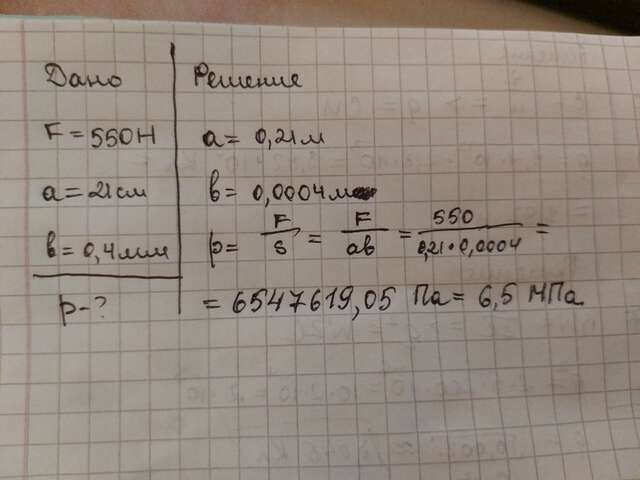 Дано
F = 550Н
a = 21см
b = 0,4мм
p-?
Решение
a = 0,21м
b = 0,0004м
p = F/S = F/ab = 550/0,21·0,0004 =
= 6547619,05 Па = 6,5 МПа